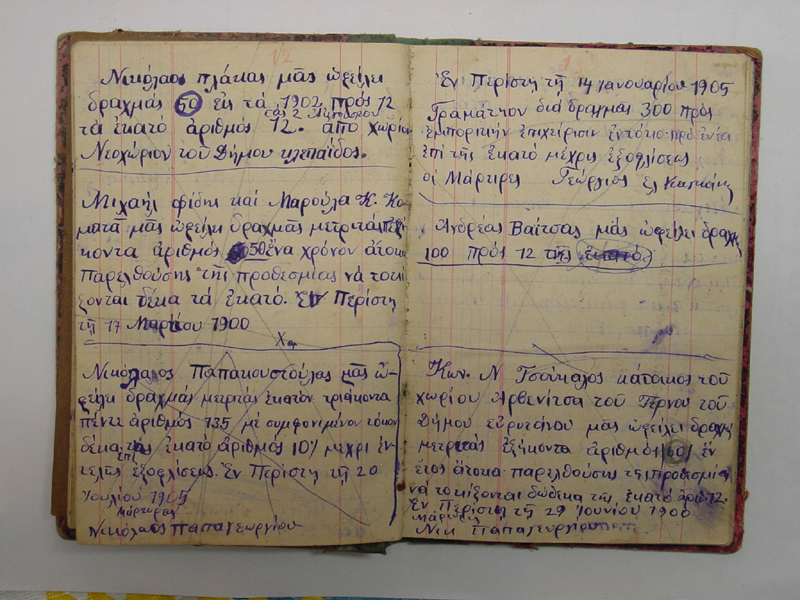 Νικόλαος πλάκας μᾶς ὠφείλει
δραχμάς 50 εἰς τά 1902 πρός 12
τάς 2 Αὐγούστου
τά ἑκατό ἀριθμός 12. ἀπό χωρίον
Νεοχώριον τοῦ Δήμου κλεπαΐδος.
Μιχαήλ φίδης καί Μαρούλα Κ.
ματᾶ μᾶς ὠφείλει δραχμᾶς μετριτάς
κοντα ἀριθμός 50 ἕνα χρόνον ἄτοκα
παρελθούσης τῆς προθεσμίας νά τοκί
ζονται δέκα τά ἑκατό. Ἐν Περίστη
τῆ 17 Μαρτίου 1900
Νικόλαος Παπακωστούλας μᾶς ὠ-
φείλει δραχμάς μετριτάς ἑκατόν τριάκοντα
πέντε ἀριθμός 135 μέ συμφονιμένον τόκον
δέκα τῆς ἑκατό ἀριθμός 10% μεχρι ἐν
τελῆς ἐξοφλίσεως. Ἐν Περίστη τῆ 20
Ἰουλίου 1905
Μάρτυρας
Νικόλαος Παπαγεωργίου
Ἐν Περίστη τῆ 14 Ιανουαρίου 1905
Γραμάτηον διά δραγμάς 300 πρός
ἐμποριτιήν ἐπιχείρισιν ἔντοκο πρό ἐνέα
ἐπί τῆς ἑκατό μέχρις ἐξοφλίσεως
οἱ Μάρτιρες Γεώργιος
Ἀνδρέας Βαΐτσας μάς ὠφείλει δραχ
100 πρός 12 τῆς ἑκατό.
Κων. Ν Τσούκαλος κάτοικος τοῦ
χωρίου Ἀρβενίτσα τοῦ τέρνου τοῦ
Δήμου εὐρυτάνου μᾶς ὠφείλει δραχ
μετριτάς ἑξήκοντα ἀριθμός 60 ἕν
ἔτος ἄτοκα παρελθούσης τῆς προθεσμίας
νά τοκίζονται δώδεκα τῆς ἑκατό ἀριθ. 12.
Ἐν Περίστη τῆ 29 Ἰουνίου 1900
Μάρτυρες
Νικ Παπαγεωργίου